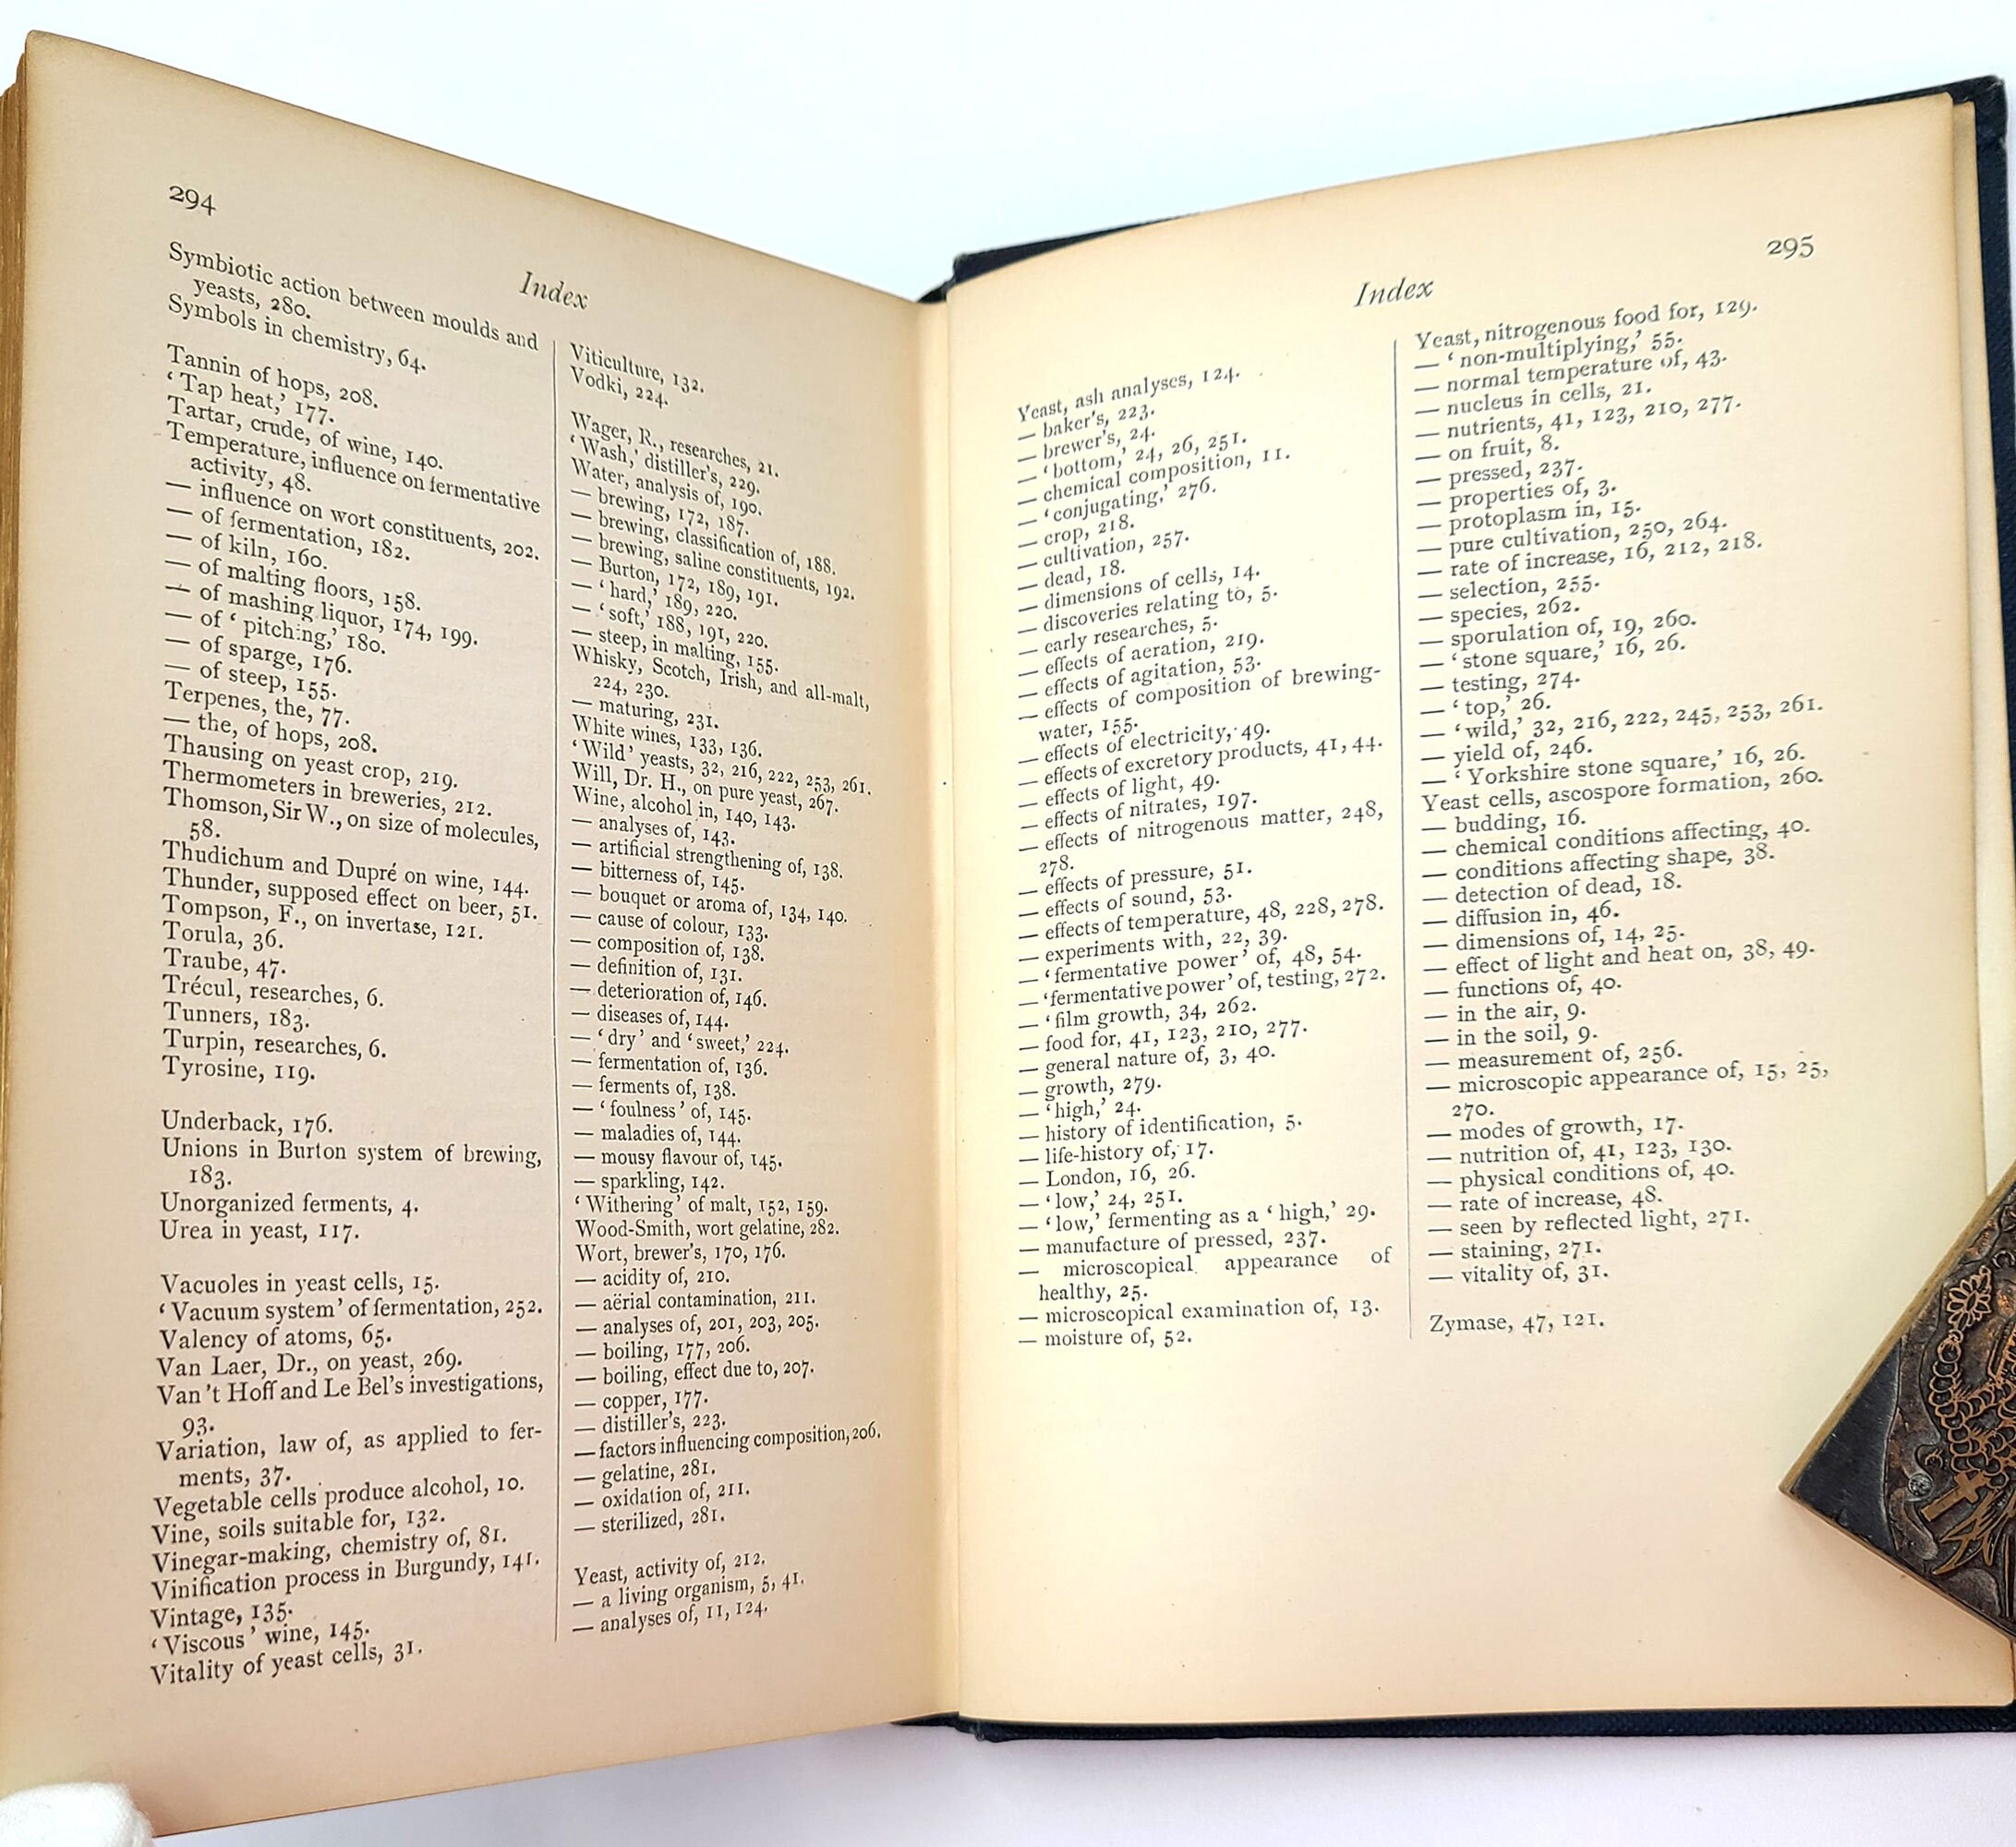 294
Index
Symbiotic action between moulds and
yeasts, 280.
Symbols in chemistry, 64.
Tannin of hops, 208.
‘Tap heat,’ 177.
Tartar, crude, of wine, 140.
Temperature, influence on fermentative
activity, 48.
— influence on wort constituents, 202.
— of fermentation, 182.
— of kiln, 160.
— of malting floors, 158.
— of mashing liquor, 174, 199.
— of ‘pitching,’ 180.
— of sparge, 176.
— of steep, 155.
Terpenes, the, 77.
— the, of hops, 208.
Thausing on yeast crop, 219.
Thermometers in breweries, 212.
Thomson, Sir W., on size of molecules,
58.
Thudichum and Dupré on wine, 144.
Thunder, supposed effect on beer, 51.
Tompson, F., on invertase, 121.
Torula, 36.
Traube, 47.
Trécul, researches, 6.
Tunners, 183.
Turpin, researches, 6.
Tyrosine, 119.
Underback, 176.
Unions in Burton system of brewing,
183.
Unorganized ferments, 4.
Urea in yeast, 117.
Vacuoles in yeast cells, 15.
‘Vacuum system’ of fermentation, 252.
Valency of atoms, 65.
Van Laer, Dr., on yeast, 269.
Van ’t Hoff and Le Bel’s investigations,
93.
Variation, law of, as applied to fer-
ments, 37.
Vegetable cells produce alcohol, 10.
Vine, soils suitable for, 132.
Vinegar-making, chemistry of, 81.
Vinification process in Burgundy, 141.
Vintage, 135.
‘Viscous’ wine, 145.
Vitality of yeast cells, 31.
Viticulture, 132.
Vodki, 224.
Wager, R., researches, 21.
‘Wash,’ distiller’s, 229.
Water, analysis of, 190.
— brewing, 172, 187.
— brewing, classification of, 188.
— brewing, saline constituents, 192.
— Burton, 172, 189, 191.
— ‘hard,’ 189, 220.
— ‘soft,’ 188, 191, 220.
— steep, in malting, 155.
Whisky, Scotch, Irish, and all-malt,
224, 230.
— maturing, 231.
White wines, 133, 136.
‘Wild’ yeasts, 32, 216, 222, 253, 261.
Will, Dr. H., on pure yeast, 267.
Wine, alcohol in, 140, 143.
— analyses of, 143.
— artificial strengthening of, 138.
— bitterness of, 145.
— bouquet or aroma of, 134, 140.
— cause of colour, 133.
— composition of, 138.
— definition of, 131.
— deterioration of, 146.
— diseases of, 144.
— ‘dry’ and ‘sweet,’ 224.
— fermentation of, 136.
— ferments of, 138.
— ‘foulness’ of, 145.
— maladies of, 144.
— mousy flavour of, 145.
— sparkling, 142.
‘Withering’ of malt, 152, 159.
Wood-Smith, wort gelatine, 282.
Wort, brewer’s, 170, 176.
— acidity of, 210.
— aërial contamination, 211.
— analyses of, 201, 203, 205.
— boiling, 177, 206.
— boiling, effect due to, 207.
— copper, 177.
— distiller’s, 223.
— factors influencing composition, 206.
— gelatine, 281.
— oxidation of, 211.
— sterilized, 281.
Yeast, activity of, 212.
— a living organism, 5, 41.
— analyses of, 11, 124.
Index
295
Yeast, ash analyses, 124.
— baker’s, 223.
— brewer’s, 24.
— ‘bottom,’ 24, 26, 251.
— chemical composition, 11.
— ‘conjugating,’ 276.
— crop, 218.
— cultivation, 257.
— dead, 18.
— dimensions of cells, 14.
— discoveries relating to, 5.
— early researches, 5.
— effects of aeration, 219.
— effects of agitation, 53.
— effects of composition of brewing-
water, 155.
— effects of electricity, 49.
— effects of excretory products, 41, 44.
— effects of light, 49.
— effects of nitrates, 197.
— effects of nitrogenous matter, 248,
278.
— effects of pressure, 51.
— effects of sound, 53.
— effects of temperature, 48, 228, 278.
— experiments with, 22, 39.
— ‘fermentative power’ of, 48, 54.
— ‘fermentative power’ of, testing, 272.
— ‘film growth, 34, 262.
— food for, 41, 123, 210, 277.
— general nature of, 3, 40.
— growth, 279.
— ‘high,’ 24.
— history of identification, 5.
— life-history of, 17.
— London, 16, 26.
— ‘low,’ 24, 251.
— ‘low,’ fermenting as a ‘high,’ 29.
— manufacture of pressed, 237.
— microscopical appearance of
healthy, 25.
— microscopical examination of, 13.
— moisture of, 52.
Yeast, nitrogenous food for, 129.
— ‘non-multiplying,’ 55.
— normal temperature of, 43.
— nucleus in cells, 21.
— nutrients, 41, 123, 210, 277.
— on fruit, 8.
— pressed, 237.
— properties of, 3.
— protoplasm in, 15.
— pure cultivation, 250, 264.
— rate of increase, 16, 212, 218.
— selection, 255.
— species, 262.
— sporulation of, 19, 260.
— ‘stone square,’ 16, 26.
— testing, 274.
— ‘top,’ 26.
— ‘wild,’ 32, 216, 222, 245, 253, 261.
— yield of, 246.
— ‘Yorkshire stone square,’ 16, 26.
Yeast cells, ascospore formation, 260.
— budding, 16.
— chemical conditions affecting, 40.
— conditions affecting shape, 38.
— detection of dead, 18.
— diffusion in, 46.
— dimensions of, 14, 25.
— effect of light and heat on, 38, 49.
— functions of, 40.
— in the air, 9.
— in the soil, 9.
— measurement of, 256.
— microscopic appearance of, 15, 25,
270.
— modes of growth, 17.
— nutrition of, 41, 123, 130.
— physical conditions of, 40.
— rate of increase, 48.
— seen by reflected light, 271.
— staining, 271.
— vitality of, 31.
Zymase, 47, 121.